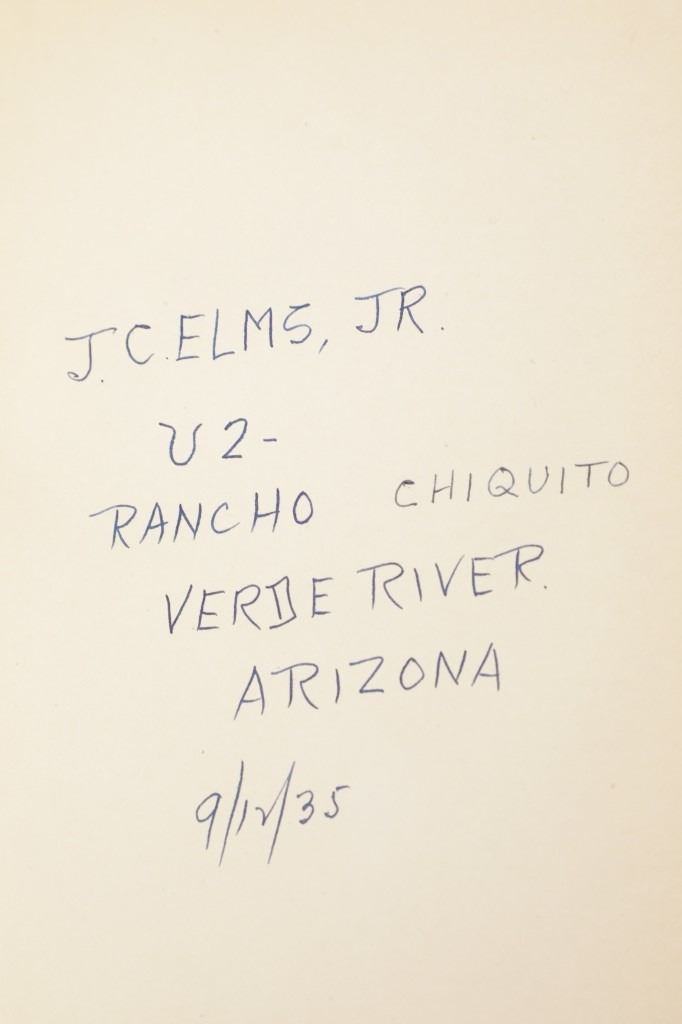 J.C. ELMS, JR.
U 2-
RANCHO CHIQUITO
VERDE RIVER.
ARIZONA
9/12/35